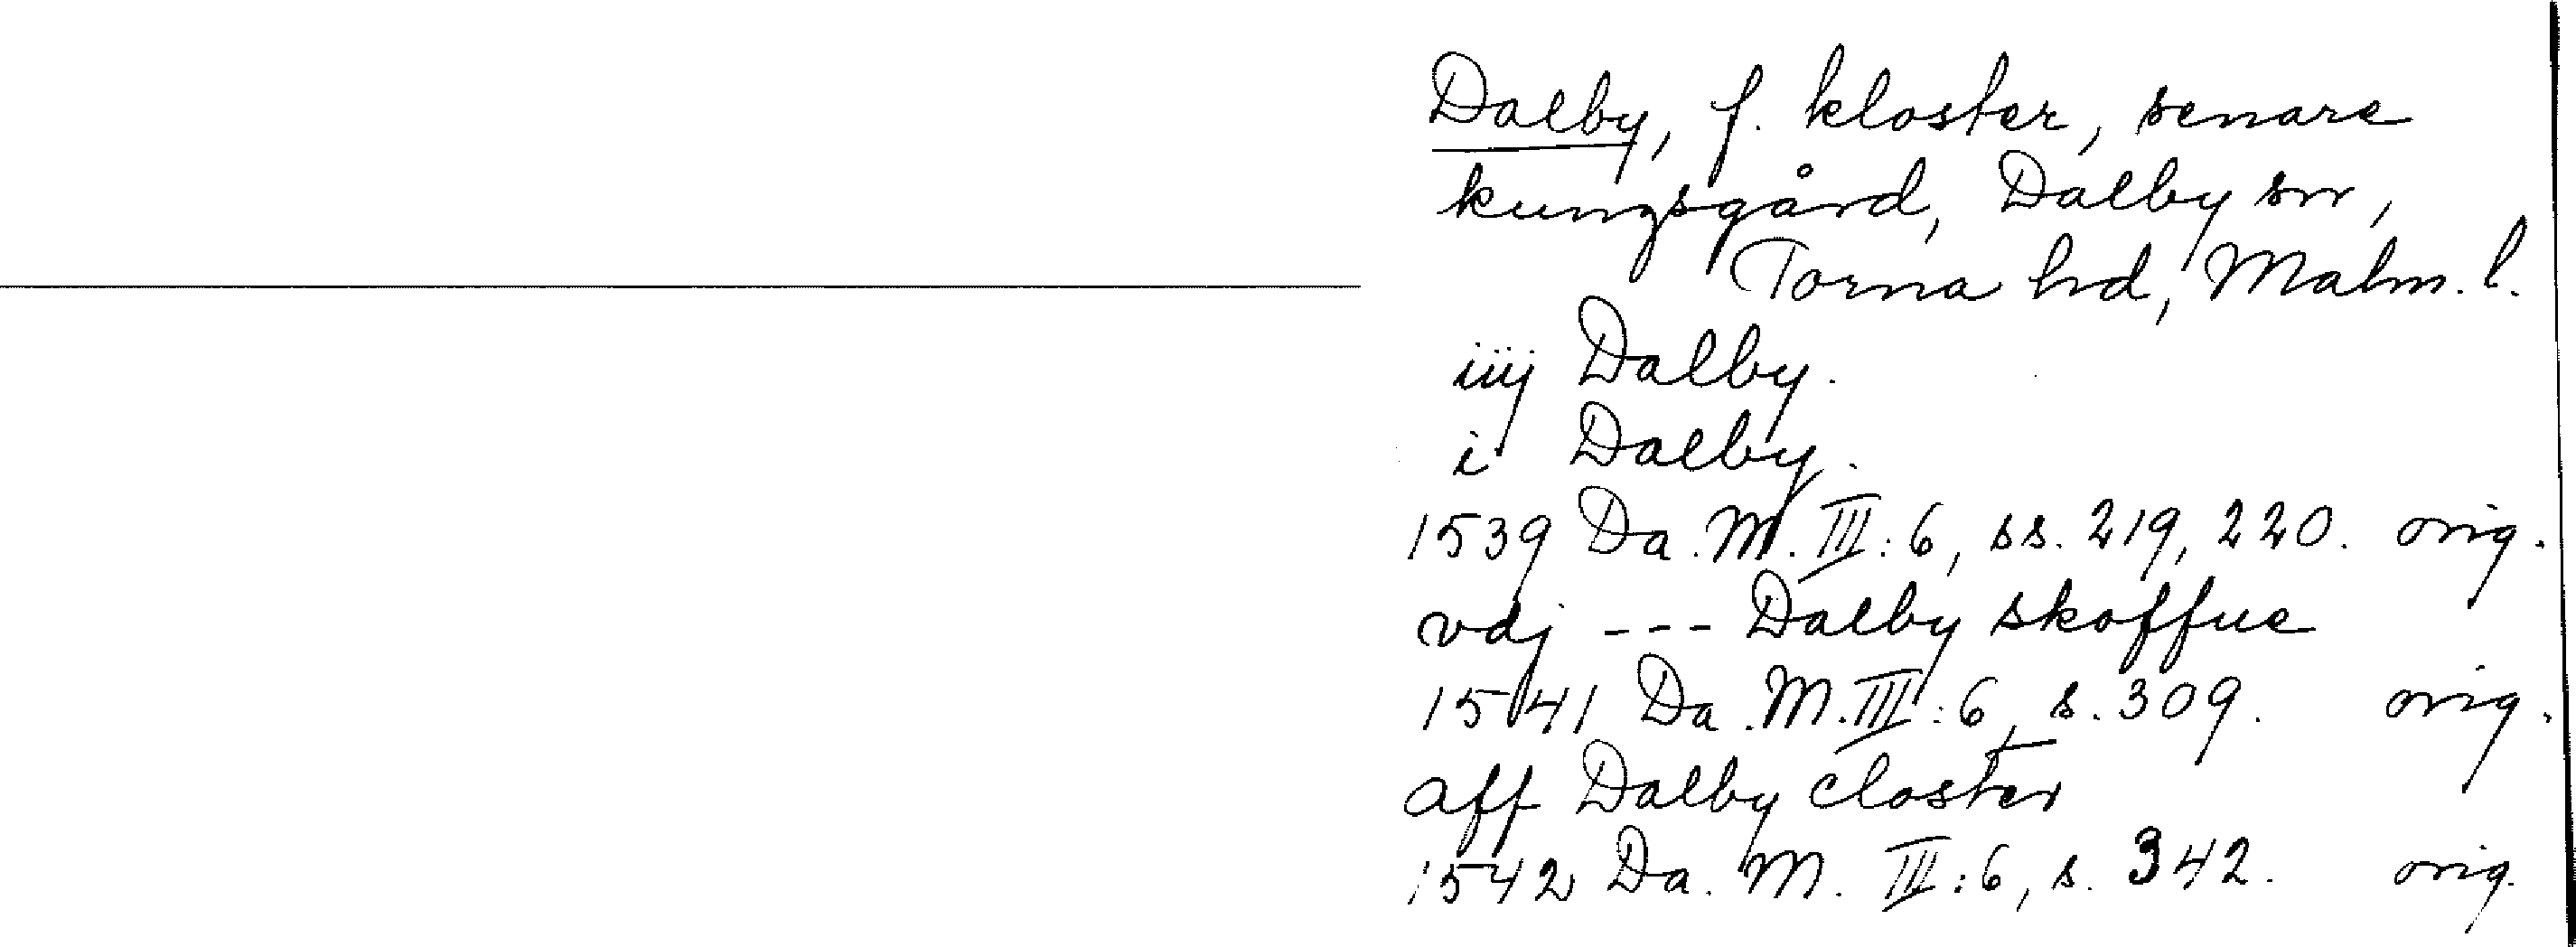 Dalby, f. kloster, senare
kungsgård, Dalby sn,
Torna hd, Malm. l.
iiij Dalby.
i Dalby.
1539 Da. M. III: 6, ss. 219, 220. orig.
vdj --- Dalby skoffue
1541 Da. M. III: 6, s. 309. orig.
aff Dalby closter
1542 Da. M. III: 6, s. 342. orig.